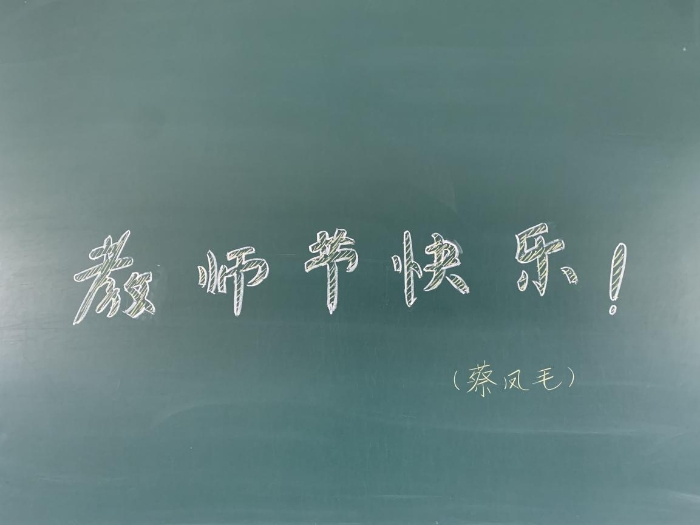 教师节快乐！
（蔡凤毛）